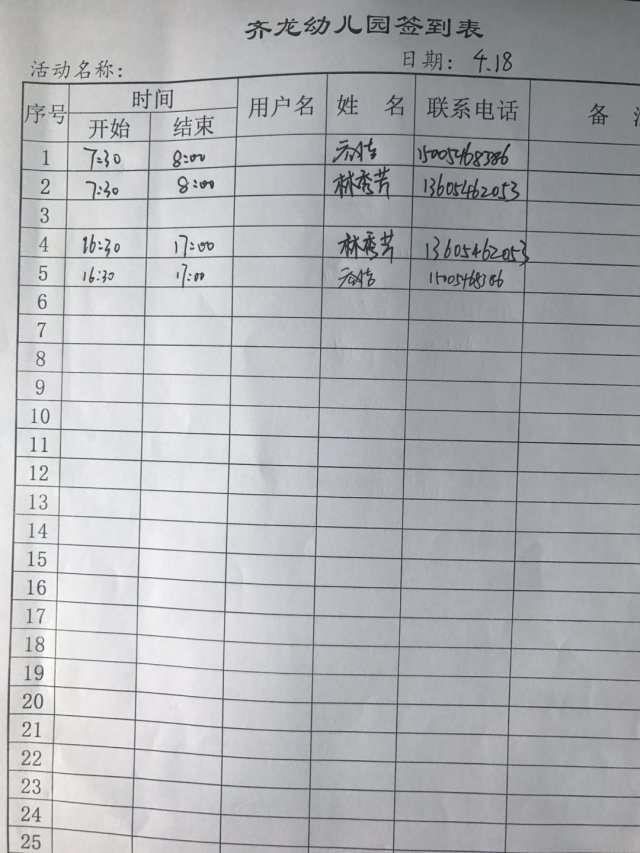 齐龙幼儿园签到表
活动名称: 日期: 4.18
序号 时间 用户名 姓 名 联系电话 备
开始 结束
1 7:30 8:00 15005468386
2 7:30 8:00 林秀芹 13605462053
3
4 16:30 17:00 林秀芹 13605462053
5 16:30 17:00 15005468386
6
7
8
9
10
11
12
13
14
15
16
17
18
19
20
21
22
23
24
25